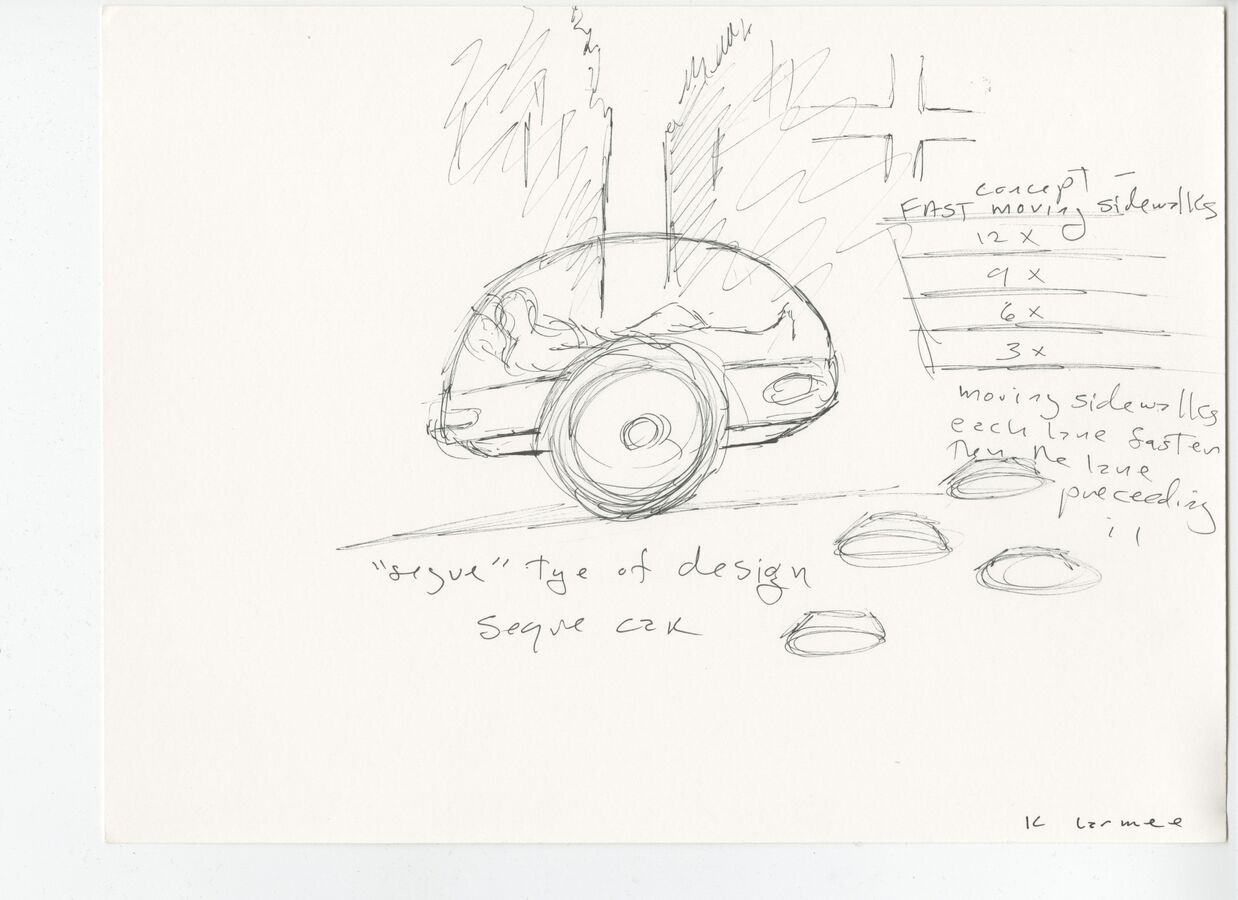 concept –
FAST moving sidewalks
12 x
9 x
6 x
3 x
moving sidewalks
each lane faster
then the lane
preceeding
it
"segue" tye of design
Segue car
K Larmee